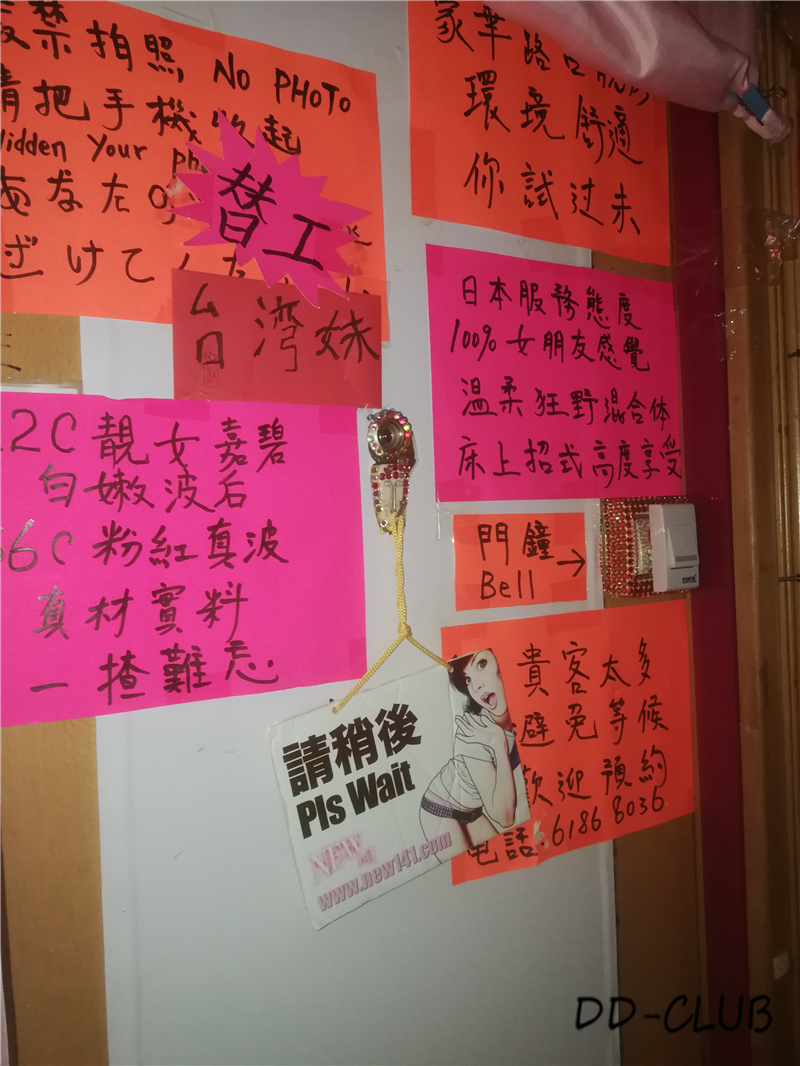 嚴禁拍照 NO PHOTO
請把手機收起
Hidden Your
あなたの
ざけてくた
替工
台灣妹
2C靚女嘉碧
白嫩波后
6C粉紅真波
真材實料
一揸難忘
環境舒適
你試过未
日本服務態度
100%女朋友感覺
温柔狂野混合体
床上招式高度享受
門鐘
Bell →
貴客太多
避免等候
歡迎預約
电話:6186 8036
請稍後
Pls Wait
NEW141
www.new141.com
DD-CLUB